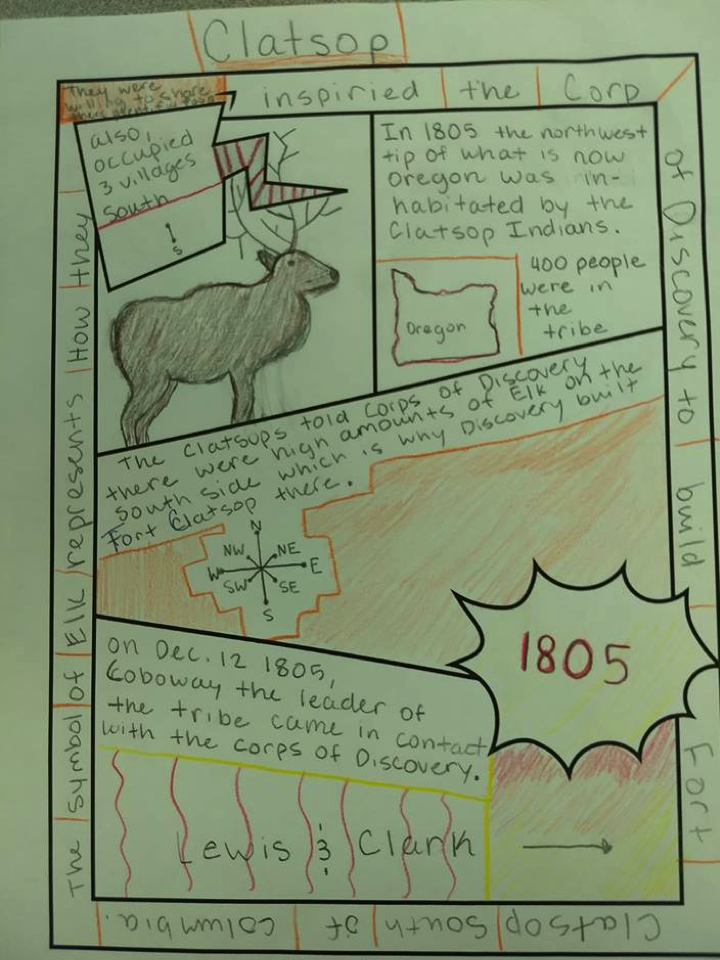 Clatsop
The symbol of Elk represents How they
inspiried the Corp
of Discovery to build
Fort
Clatsop south of Columbia.
They were
willing to share
also,
occupied
3 villages
south
S
In 1805 the northwest
tip of what is now
oregon was in-
habitated by the
Clatsop Indians.
400 people
were in
the
tribe
Oregon
The Clatsops told Corps of Discovery
there were high amounts of Elk on the
south side which is why Discovery built
Fort Clatsop there.
N
NW NE
W E
SW SE
S
1805
on Dec. 12 1805,
Coboway the leader of
the tribe came in contact
with the corps of Discovery.
Lewis & Clark